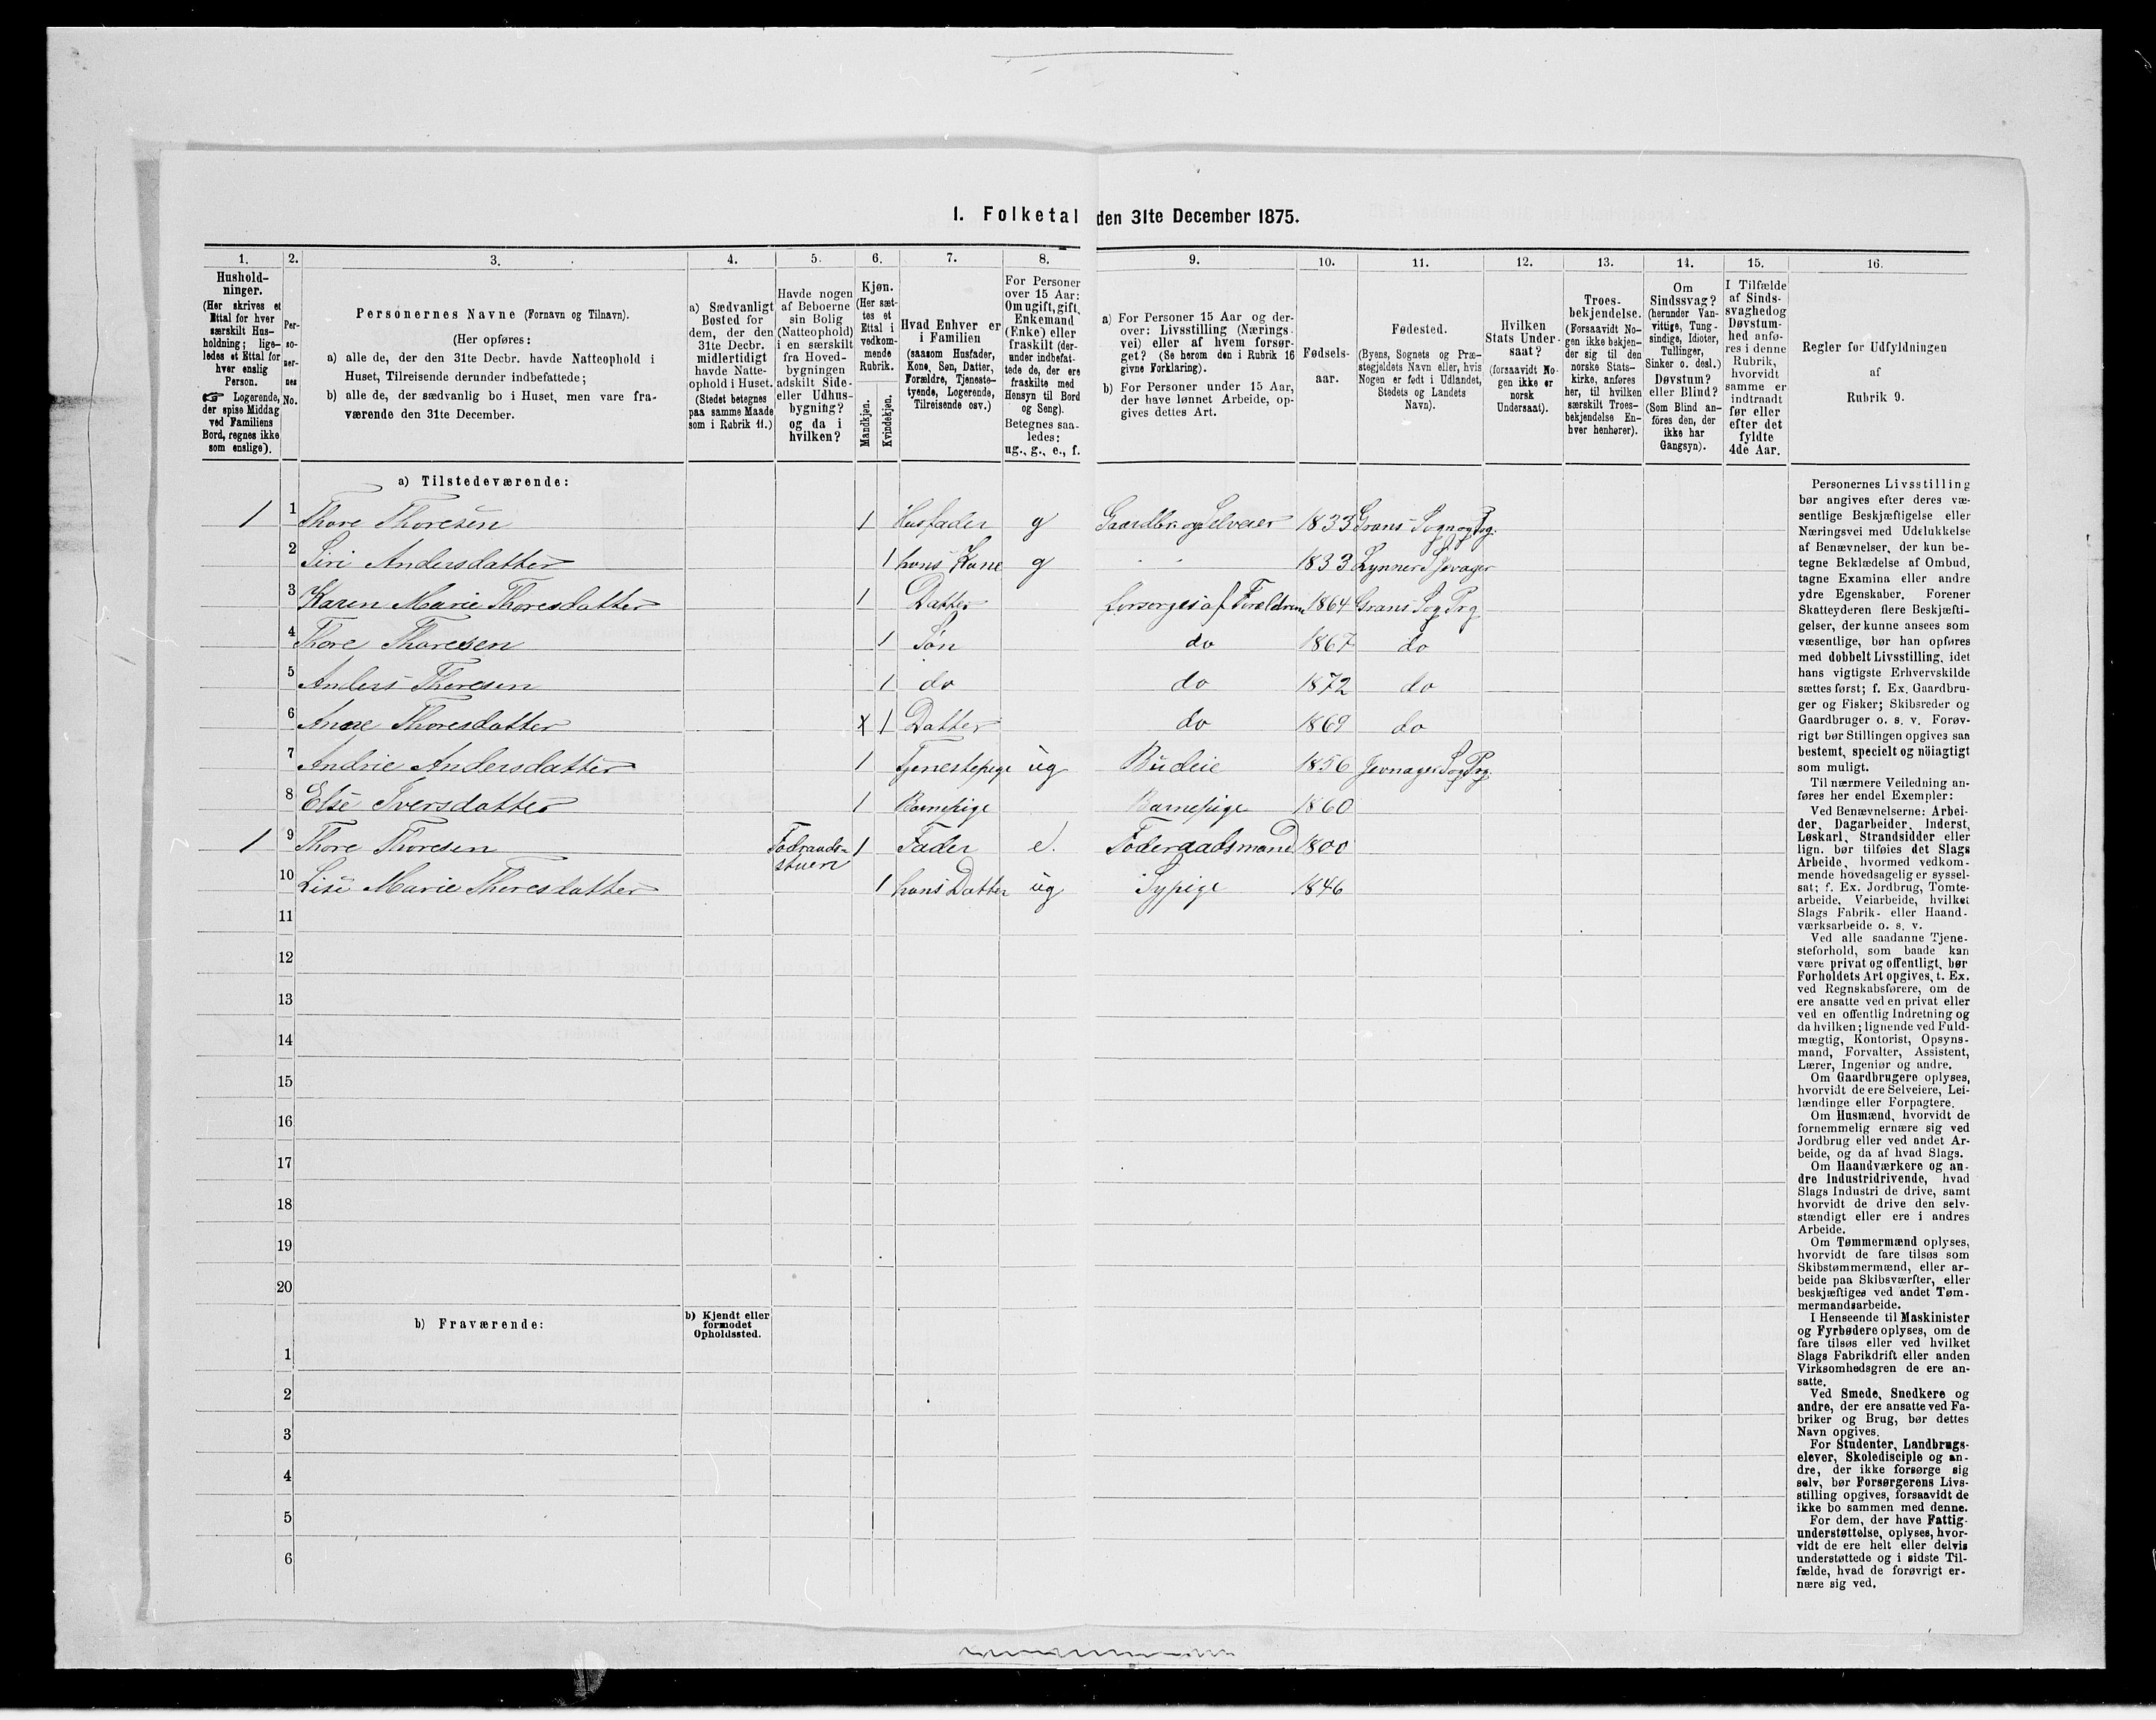 I. Folketal den 31te December 1875.
1. 2. 3. 4. 5. 6. 7. 8. 9. 10. 11. 12. 13. 14. 15. 16.
Hushold-
ninger.
(Her skrives et
Ettal for hver
særskilt Hus-
holdning; lige-
ledes et Ettal for
hver enslig
Person.
☞ Logerende,
der spise Middag
ved Familiens
Bord, regnes ikke
som enslige).
Per-
so-
ner-
nes
No.
Personernes Navne (Fornavn og Tilnavn).
(Her opføres:
a) alle de, der den 31te Decbr. havde Natteophold i
Huset, Tilreisende derunder indbefattede;
b) alle de, der sædvanlig bo i Huset, men vare fra-
værende den 31te December.
a) Sædvanligt
Bosted for
dem, der den
31te Decbr.
midlertidigt
havde Natte-
ophold i Huset.
(Stedet betegnes
paa samme Maade
som i Rubrik 11.)
Havde nogen
af Beboerne
sin Bolig
(Natteophold)
i en særskilt
fra Hoved-
bygningen
adskilt Side-
eller Udhus-
bygning?
og da i
hvilken?
Kjøn.
(Her sæt-
tes et
Ettal i
vedkom-
mende
Rubrik.
Mandkjøn.
Kvindekjøn.
Hvad Enhver er
i Familien
(saasom Husfader,
Kone, Søn, Datter,
Forældre, Tjeneste-
tyende, Logerende,
Tilreisende osv.)
For Personer
over 15 Aar:
Om ugift, gift,
Enkemand
(Enke) eller
fraskilt (der-
under indbefat-
tede de, der ere
fraskilte med
Hensyn til Bord
og Seng).
Betegnes saa-
ledes:
ug., g., e., f.
a) For Personer 15 Aar og der-
over: Livsstilling (Nærings-
vei) eller af hvem forsør-
get? (Se herom den i Rubrik 16
givne Forklaring).
b) For Personer under 15 Aar,
der have lønnet Arbeide, op-
gives dettes Art.
Fødsels-
aar.
Fødested.
(Byens, Sognets og Præ-
stegjeldets Navn eller, hvis
Nogen er født i Udlandet,
Stedets og Landets
Navn).
Hvilken
Stats Under-
saat?
(forsaavidt No-
gen ikke er
norsk
Undersaat).
Troes-
bekjendelse.
(Forsaavidt No-
gen ikke bekjen-
der sig til den
norske Stats-
kirke, anføres
her, til hvilken
særskilt Troes-
bekjendelse En-
hver henhører).
Om
Sindssvag?
(herunder Van-
vittige, Tung-
sindige, Idioter,
Tullinger,
Sinker o. desl.)
Døvstum?
eller Blind?
(Som Blind an-
føres den, der
ikke har
Gangsyn).
I Tilfælde
af Sinds-
svaghed og
Døvstum-
hed anfø-
res i denne
Rubrik,
hvorvidt
samme er
indtraadt
før eller
efter det
fyldte
4de Aar.
Regler for Udfyldningen
af
Rubrik 9.
a) Tilstedeværende:
1 1 Thore Thoresen 1 Husfader g Gaardbr. og Selveier 1833 Grans Sogn og Prg.
2 Siri Andersdatter 1 hans Kone g 1833 Lynner S Jevnager
3 Karen Marie Thoresdatter 1 Datter forsørges af Forældrene 1864 Grans Sog Prg
4 Thore Thoresen 1 Søn do 1867 do
5 Anders Thoresen 1 do do 1872 do
6 Anne Thoresdatter x 1 Datter do 1869 do
7 Andrie Andersdatter 1 Tjenestepige ug Budeie 1856 Jevnager Sog Prg.
8 Else Iversdatter 1 Barnepige Barnepige 1860
1 9 Thore Thoresen Fodraads-
stuen 1 Fader e. Foderaadsmand 1800
10 Lise Marie Thoresdatter 1 hans Datter ug Sypige 1846
11
12
13
14
15
16
17
18
19
20
b) Fraværende:
b) Kjendt eller
formodet
Opholdssted.
1
2
3
4
5
6
Personernes Livsstilling
bør angives efter deres væ-
sentlige Beskjæftigelse eller
Næringsvei med Udelukkelse
af Benævnelser, der kun be-
tegne Beklædelse af Ombud,
tagne Examina eller andre
ydre Egenskaber. Forener
Skatteyderen flere Beskjæfti-
gelser, der kunne ansees som
væsentlige, bør han opføres
med dobbelt Livsstilling, idet
hans vigtigste Erhvervskilde
sættes først; f. Ex. Gaardbru-
ger og Fisker; Skibsreder og
Gaardbruger o. s. v. Forøv-
rigt bør Stillingen opgives saa
bestemt, specielt og nöiagtigt
som muligt.
Til nærmere Veiledning an-
føres her endel Exempler:
Ved Benævnelserne: Arbei-
der, Dagarbeider, Inderst,
Løskarl, Strandsidder eller
lign. bør tilføies det Slags
Arbeide, hvormed vedkom-
mende hovedsagelig er syssel-
sat; f. Ex. Jordbrug, Tomte-
arbeide, Veiarbeide, hvilket
Slags Fabrik- eller Haand-
værksarbeide o. s. v.
Ved alle saadanne Tjene-
steforhold, som baade kan
være privat og offentligt, bør
Forholdets Art opgives, t. Ex.
ved Regnskabsførere, om de
ere ansatte ved en privat eller
ved en offentlig Indretning og
da hvilken; lignende ved Fuld-
mægtig, Kontorist, Opsyns-
mand, Forvalter, Assistent,
Lærer, Ingeniør og andre.
Om Gaardbrugere oplyses,
hvorvidt de ere Selveiere, Lei-
lændinge eller Forpagtere.
Om Husmænd, hvorvidt de
fornemmelig ernære sig ved
Jordbrug eller ved andet Ar-
beide, og da af hvad Slags.
Om Haandværkere og an-
dre Industridrivende, hvad
Slags Industri de drive, samt
hvorvidt de drive den selv-
stændigt eller ere i andres
Arbeide.
Om Tømmermænd oplyses,
hvorvidt de fare tilsøs som
Skibstømmermænd, eller ar-
beide paa Skibsværfter, eller
beskjæftiges ved andet Tøm-
mermandsarbeide.
I Henseende til Maskinister
og Fyrbødere oplyses, om de
fare tilsøs eller ved hvilket
Slags Fabrikdrift eller anden
Virksomhedsgren de ere an-
satte.
Ved Smede, Snedkere og
andre, der ere ansatte ved Fa-
briker og Brug, bør dettes
Navn opgives.
For Studenter, Landbrugs-
elever, Skoledisciple og an-
dre, der ikke forsørge sig
selv, bør Forsørgerens Livs-
stilling opgives, forsaavidt de
ikke bo sammen med denne.
For dem, der have Fattig-
understøttelse, oplyses, hvor-
vidt de ere helt eller delvis
understøttede og i sidste Til-
fælde, hvad de forøvrigt er-
nære sig ved.